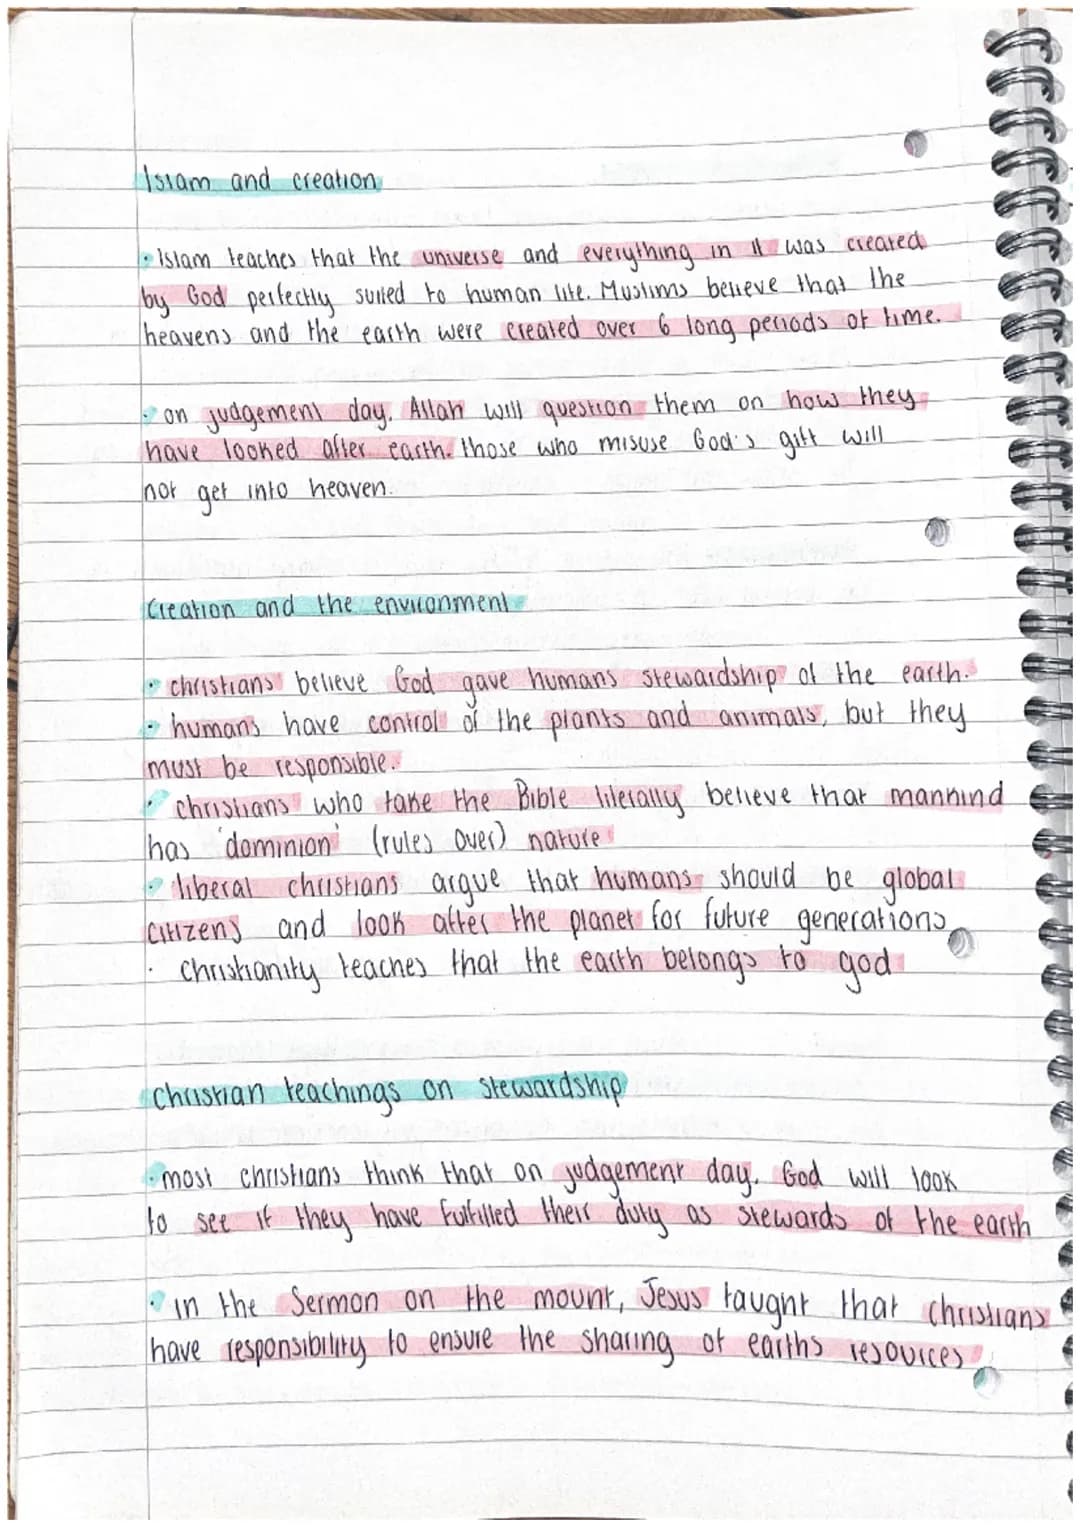 Islam and creation
• Islam teaches that the universe and everything in it was created
by God perfectly suited to human life. Muslims believe that the
heavens and the earth were created over 6 long periods of time.
• on judgement day, Allah will question them on how they
have looked after earth. those who misuse God's gift will
not get into heaven.
Creation and the environment
• christians believe God gave humans stewardship of the earth.
• humans have control of the plants and animals, but they
must be responsible.
• christians who take the Bible literally believe that mankind
has 'dominion' (rules over) nature
• liberal christians argue that humans should be global
citizens and look after the planet for future generations
• Christianity teaches that the earth belongs to god
Christian teachings on stewardship
• most christians think that on judgement day, God will look
to see if they have fulfilled their duty as stewards of the earth
• in the Sermon on the mount, Jesus taught that christians
have responsibility to ensure the sharing of earths resources